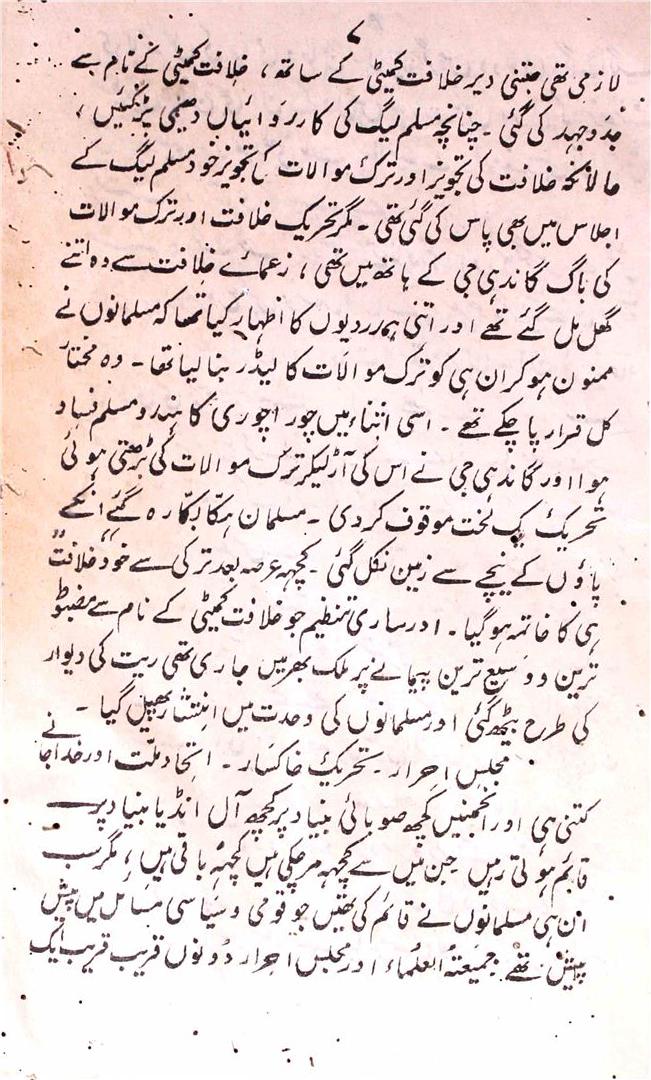 ۷
لازمی تھی جتنی دیر خلافت کمیٹی کے ساتھ ، خلافت کمیٹی کے نام سے
جدوجہد کی گئی ۔ چنانچہ مسلم لیگ کی کارروائیاں دھیمی پڑ گئیں ،
حالانکہ خلافت کی تجویز اور ترک موالات کی تجویز خود مسلم لیگ کے
اجلاس میں بھی پاس کی گئی تھی ۔ مگر تحریک خلافت اور ترک موالات
کی باگ گاندہی جی کے ہاتھ میں تھی ، زعمائے خلافت سے وہ اتنے
گھل مل گئے تھے اور اتنی ہمدردیوں کا اظہار کیا تھا کہ مسلمانوں نے
ممنون ہو کر ان ہی کو ترک موالات کا لیڈر بنا لیا تھا ۔ وہ مختار
کل قرار پا چکے تھے ۔ اسی اثناء میں چورا چوری کا ہندو مسلم فساد
ہوا اور گاندہی جی نے اس کی آڑ لیکر ترک موالات کی بڑھتی ہوئی
تحریک یک لخت موقوف کر دی ۔ مسلمان ہکا بکا رہ گئے انکے
پاؤں کے نیچے سے زمین نکل گئی ۔ کچھہ عرصہ بعد ترکی سے خود "خلافت"
ہی کا خاتمہ ہو گیا ۔ اور ساری تنظیم جو خلافت کمیٹی کے نام سے مضبوط
ترین و وسیع ترین پیمانے پر ملک بھر میں جاری تھی ریت کی دیوار
کی طرح بیٹھ گئی اور مسلمانوں کی وحدت میں انتشار پھیل گیا ۔
مجلس احرار ۔ تحریک خاکسار ۔ اتحاد ملت اور خدا جانے
کتنی ہی اور انجمنیں کچھ صوبائی بنیاد پر کچھ آل انڈیا بنیاد پر
قائم ہوتی رہیں جن میں سے کچھہ مر چکی ہیں کچھہ باقی ہیں ، مگر سب
ان ہی مسلمانوں نے قائم کی تھیں جو قومی و سیاسی مسائل میں پیش
پیش تھے جمیعتہ العلماء اور مجلس احرار دونوں قریب قریب ایک